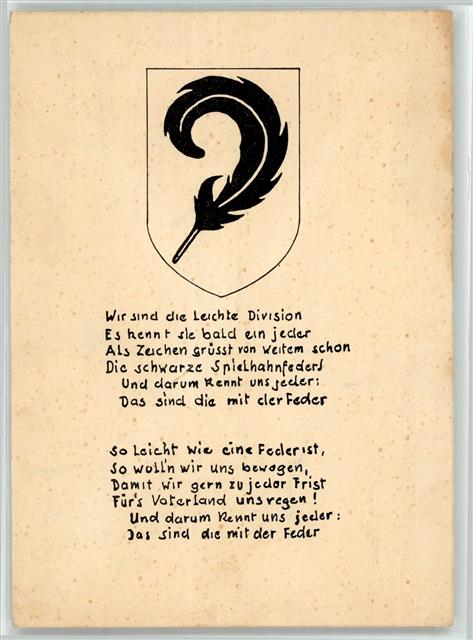 Wir sind die Leichte Division
Es kennt sie bald ein jeder
Als Zeichen grüsst von weitem schon
Die schwarze Spielhahnfeder!
Und darum kennt uns jeder:
Das sind die mit der Feder
So leicht wie eine Feder ist,
So woll'n wir uns bewegen,
Damit wir gern zu jeder Frist
Für's Vaterland uns regen!
Und darum kennt uns jeder:
Das sind die mit der Feder